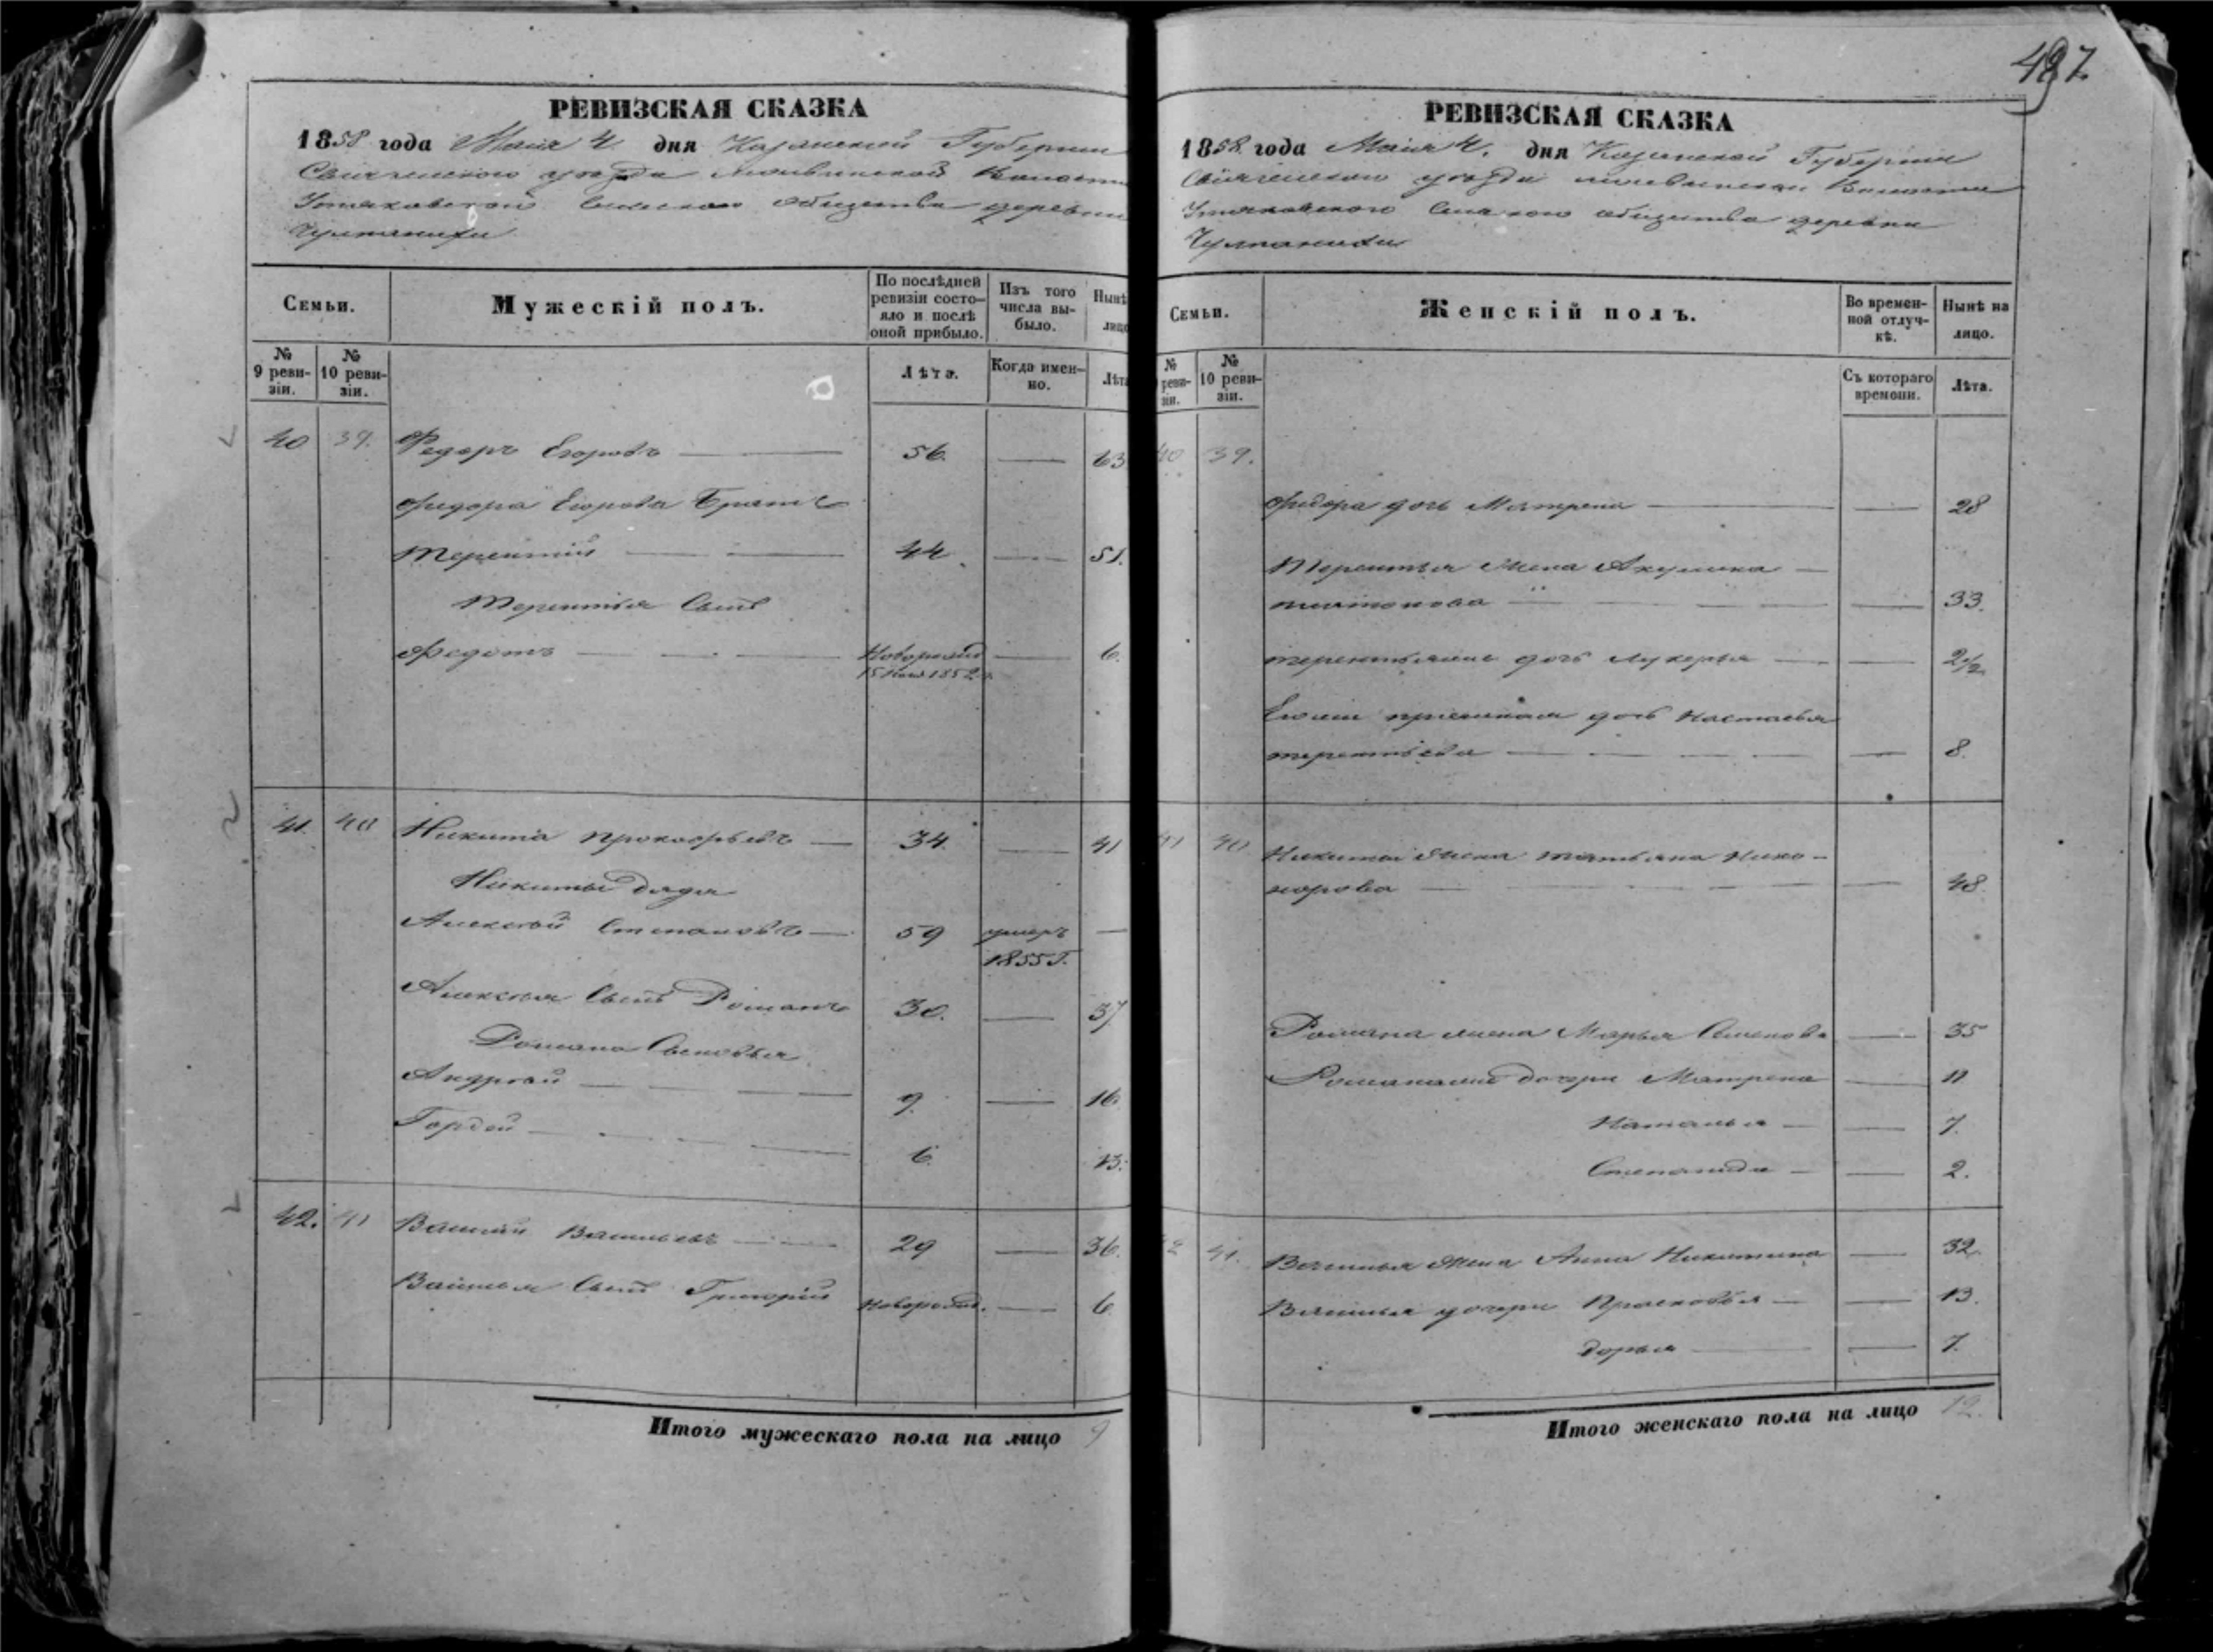 487
РЕВИЗСКАЯ СКАЗКА
1858 года Маія 4 дня Казанской Губерніи
Свіяжскаго уѣзда Волости
общества деревни
РЕВИЗСКАЯ СКАЗКА
1858 года Маія 4. дня Казанской Губерніи
Свіяжскаго уѣзда Волости
общества деревни
Семьи.
Мужескій полъ.
По послѣдней ревизіи состояло и послѣ оной прибыло.
Изъ того числа выбыло.
Нынѣ
лицо
№ 9 ревизіи.
№ 10 ревизіи.
Лѣта.
Когда именно.
Лѣта
40 39. Федоръ Егоровъ 56. 63
Федора Егорова Братъ
Терентій 44 51.
Терентія Сынъ
Федотъ Новорожд 6.
1852
41. 40 Никита Прокофьевъ 34 41
Никиты дядя
Алексѣй Степановъ 59 умеръ
1855 г.
Алексѣя Сынъ Романъ 30. 37
Романа Сыновья
Андрей 9. 16
Гордей 6. 13.
42. 41 Василій Васильевъ 29 36.
Василья Сынъ Григорій Новорожд. 6
Итого мужескаго пола на лицо 9
Семьи.
Женскій полъ.
Во временной отлучкѣ.
Нынѣ на лицо.
№ реви-зіи.
№ 10 ревизіи.
Съ котораго времени.
Лѣта.
40 39.
Федора дочь Матрена 28
Терентья Жена Акулина
Платонова 33.
дочь Лукерья 2 1/2
дочь Настасья
Терентьева 8.
41 40 Никиты Жена Татьяна Никанорова 48.
Романа жена Марья Семенова 35
дочери Матрена 11
Наталья 7.
Степанида 2.
42 41. Василья Жена Анна Никитина 32.
Василья дочери Прасковья 13.
Дарья 7.
Итого женскаго пола на лицо 12.